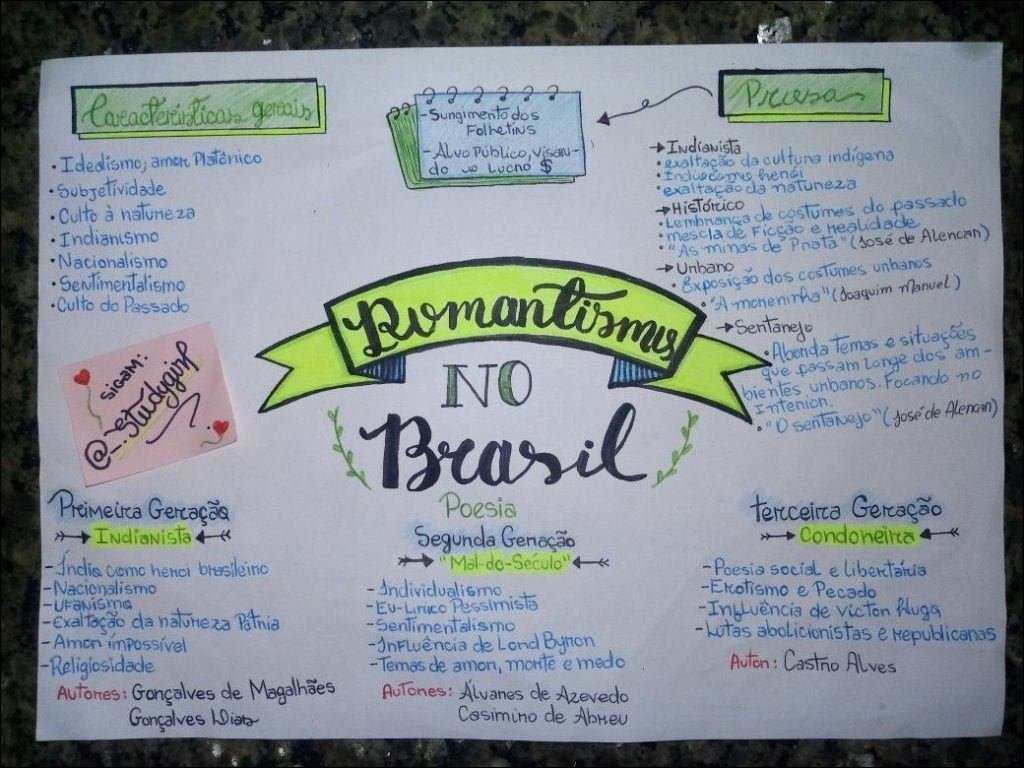 Características gerais
• Idealismo; amor Platônico
• Subjetividade
• Culto à natureza
• Indianismo
• Nacionalismo
• Sentimentalismo
• Culto do Passado
- Surgimento dos
Folhetins
- Alvo Público, visan-
do o Lucro $
Prosa
→ Indianista
• exaltação da cultura indígena
• Índio como herói
• exaltação da natureza
→ Histórico
• Lembrança de costumes do passado
• mescla de Ficção e realidade
• "As minas de Prata" (José de Alencar)
→ Urbano
• Exposição dos costumes urbanos
• "A moreninha" (Joaquim Manuel)
→ Sertanejo
• Aborda temas e situações
que passam longe dos am-
bientes urbanos. Focando no
Interior.
• "O sertanejo" (José de Alencar)
Romantismo
NO
Brasil
SIGAM:
@_.studygirl
Poesia
Primeira Geração
Indianista
- Índio como herói brasileiro
- Nacionalismo
- Ufanismo
- Exaltação da natureza Pátria
- Amor impossível
- Religiosidade
Autores: Gonçalves de Magalhães
Gonçalves Dias
Segunda Geração
"Mal-do-Século"
- Individualismo
- Eu-Lírico Pessimista
- Sentimentalismo
- Influência de Lord Byron
- Temas de amor, morte e medo
Autores: Álvares de Azevedo
Casimiro de Abreu
terceira Geração
Condoreira
- Poesia social e libertária
- Erotismo e Pecado
- Influência de Victor Hugo
- Lutas abolicionistas e republicanas
Autor: Castro Alves